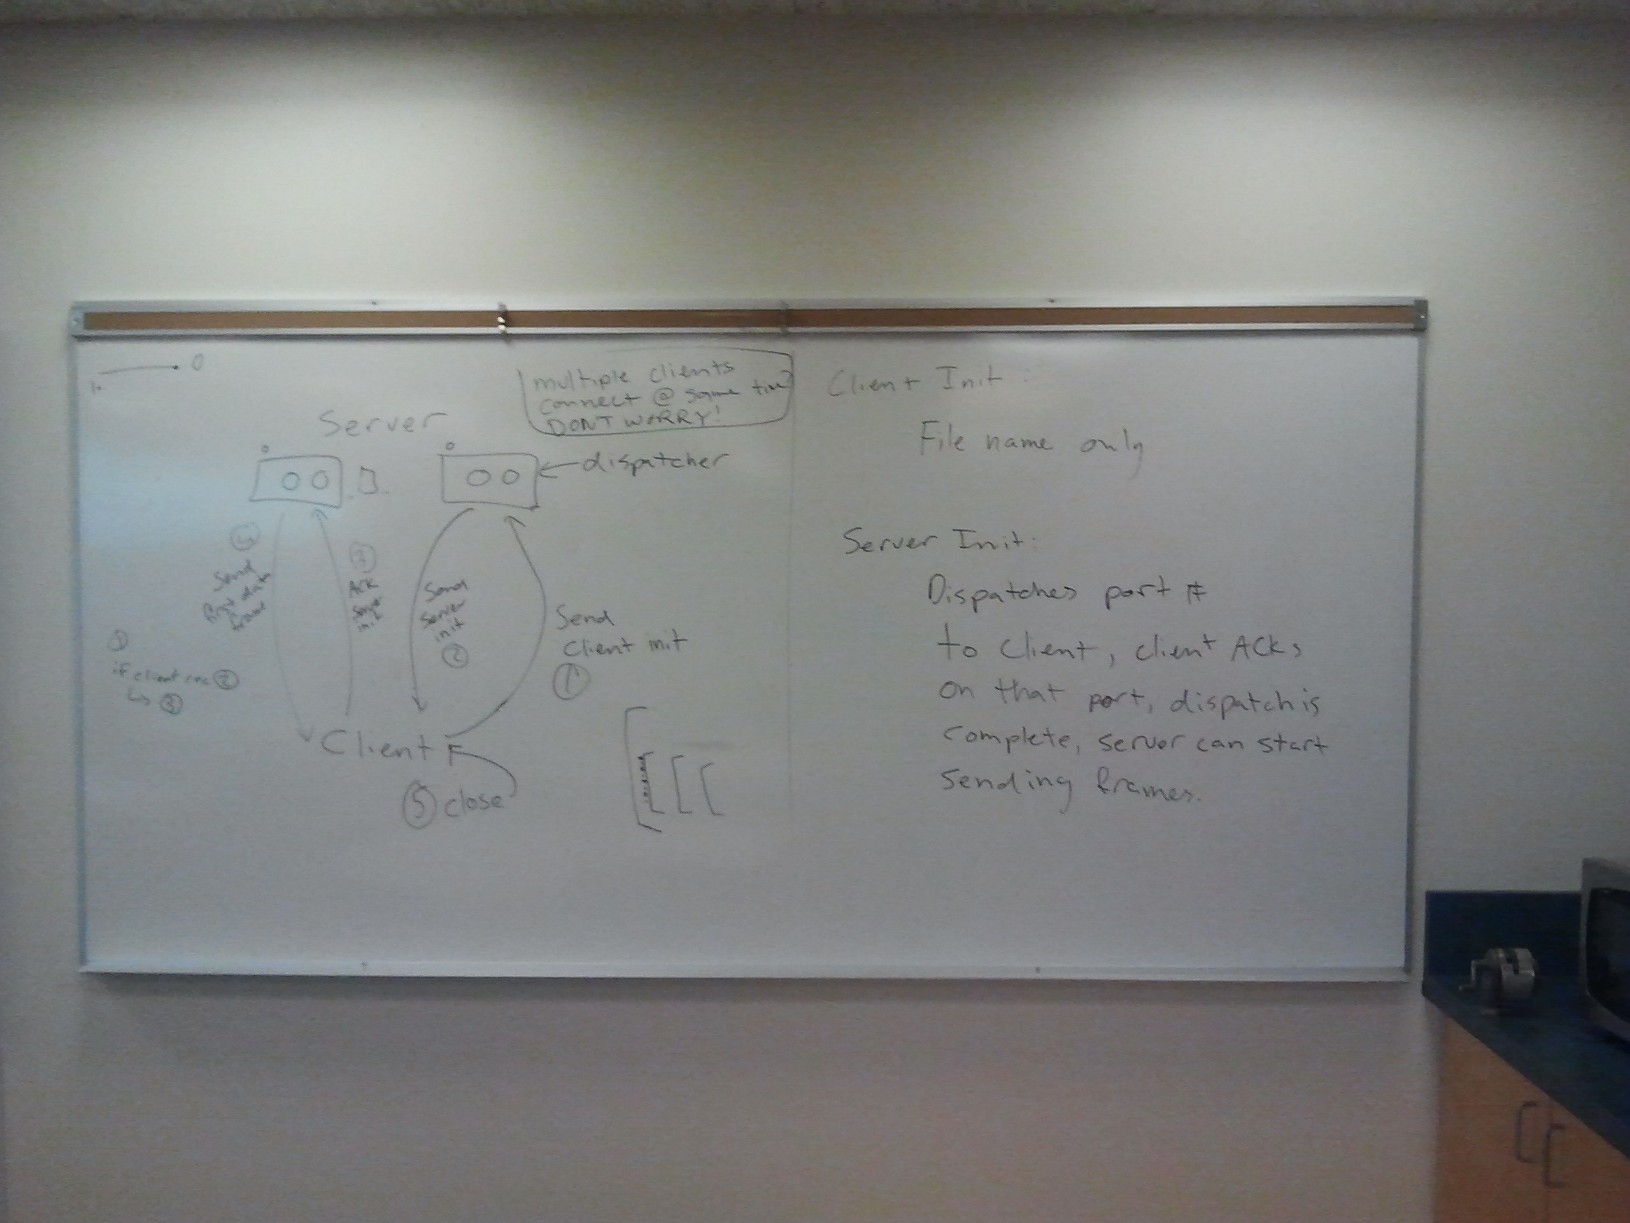 O
multiple clients
connect @ same time
DONT WORRY!
Server
dispatcher
④
Send
first data
frame
③
Ack
Server
init
Send
Server
init
②
Send
Client init
①
①
if client rec ②
↳ ③
Client
⑤ close
Client Init:
File name only
Server Init:
Dispatches port #
to Client, client ACKs
on that port, dispatch is
complete, server can start
sending frames.